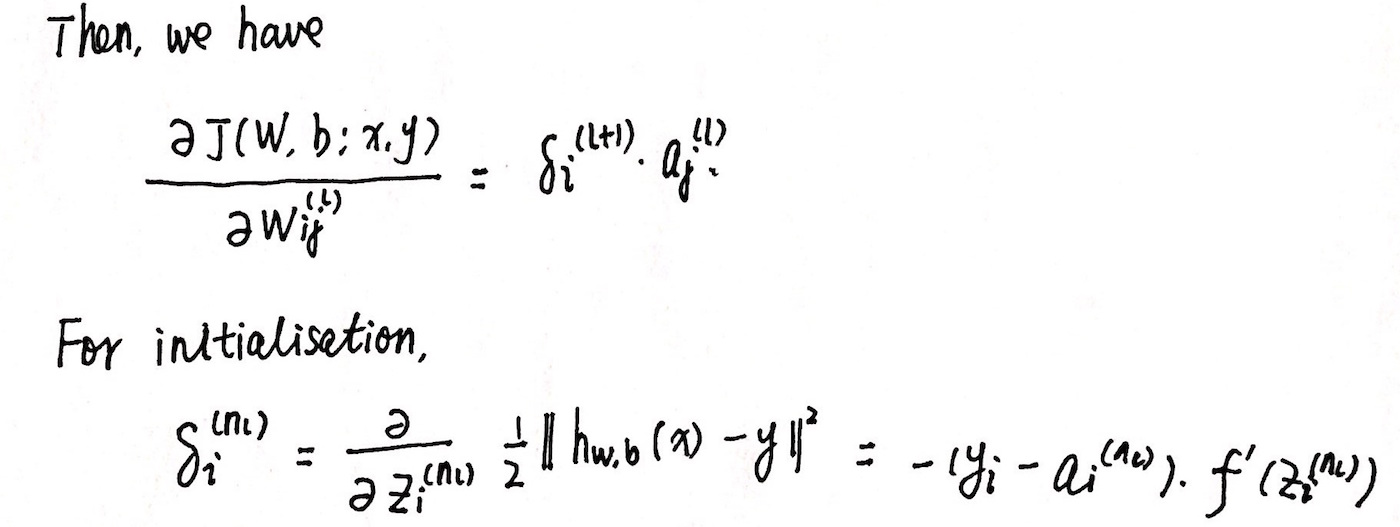 Then, we have
∂J(W, b; x, y) / ∂W_{ij}^{(l)} = δ_i^{(l+1)} · a_j^{(l)}.
For initialisation,
δ_i^{(n_l)} = ∂/∂z_i^{(n_l)} 1/2 ‖h_{w,b}(x) − y‖² = −(y_i − a_i^{(n_l)}) · f′(z_i^{(n_l)})